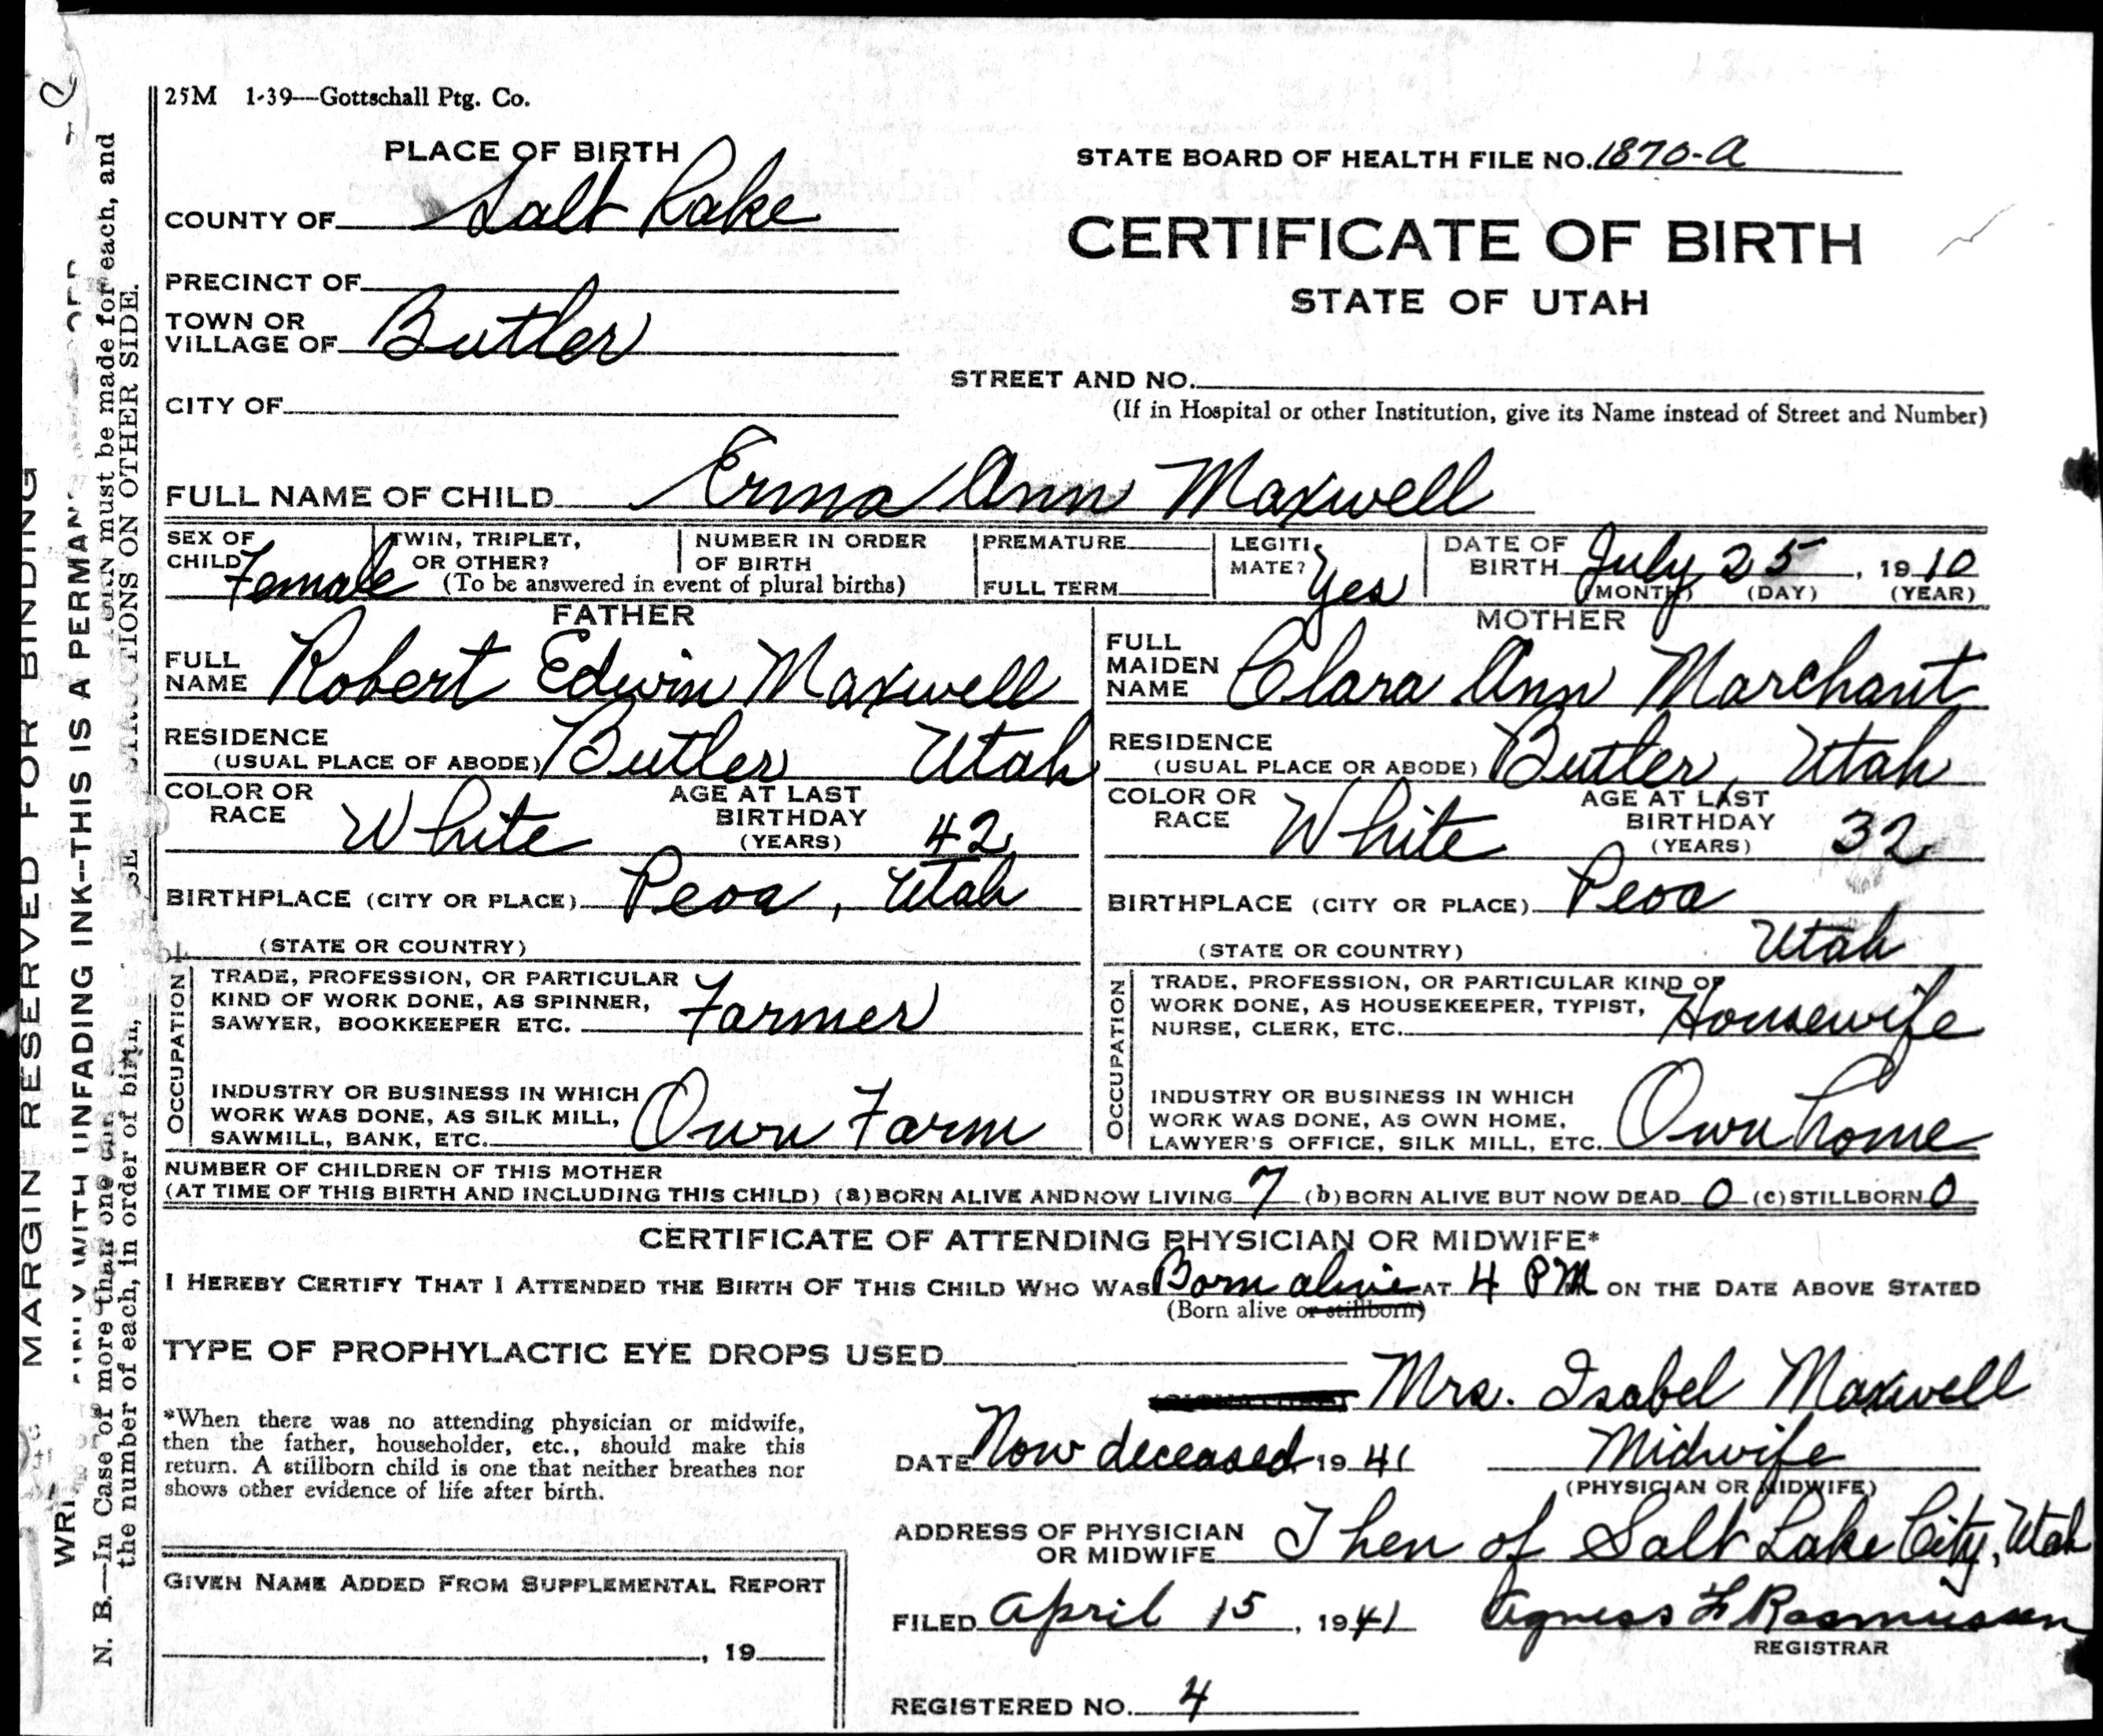 25M 1-39—Gottschall Ptg. Co.
PLACE OF BIRTH
STATE BOARD OF HEALTH FILE NO. 1870-a
COUNTY OF Salt Lake
CERTIFICATE OF BIRTH
PRECINCT OF
STATE OF UTAH
TOWN OR
VILLAGE OF Butler
STREET AND NO.
CITY OF
(If in Hospital or other Institution, give its Name instead of Street and Number)
FULL NAME OF CHILD Erma Ann Maxwell
SEX OF
CHILD Female
TWIN, TRIPLET,
OR OTHER?
NUMBER IN ORDER
OF BIRTH
(To be answered in event of plural births)
PREMATURE
FULL TERM
LEGITI-
MATE? Yes
DATE OF
BIRTH July 25, 1910
(MONTH) (DAY) (YEAR)
FATHER
FULL
NAME Robert Edwin Maxwell
RESIDENCE
(USUAL PLACE OF ABODE) Butler Utah
COLOR OR
RACE White
AGE AT LAST
BIRTHDAY
(YEARS) 42
BIRTHPLACE (CITY OR PLACE) Peoa, Utah
(STATE OR COUNTRY)
OCCUPATION
TRADE, PROFESSION, OR PARTICULAR
KIND OF WORK DONE, AS SPINNER,
SAWYER, BOOKKEEPER ETC. Farmer
INDUSTRY OR BUSINESS IN WHICH
WORK WAS DONE, AS SILK MILL,
SAWMILL, BANK, ETC. Own Farm
MOTHER
FULL
MAIDEN
NAME Clara Ann Marchant
RESIDENCE
(USUAL PLACE OR ABODE) Butler, Utah
COLOR OR
RACE White
AGE AT LAST
BIRTHDAY
(YEARS) 32
BIRTHPLACE (CITY OR PLACE) Peoa
(STATE OR COUNTRY) Utah
OCCUPATION
TRADE, PROFESSION, OR PARTICULAR KIND OF
WORK DONE, AS HOUSEKEEPER, TYPIST,
NURSE, CLERK, ETC. Housewife
INDUSTRY OR BUSINESS IN WHICH
WORK WAS DONE, AS OWN HOME,
LAWYER'S OFFICE, SILK MILL, ETC. Own home
NUMBER OF CHILDREN OF THIS MOTHER
(AT TIME OF THIS BIRTH AND INCLUDING THIS CHILD) (a) BORN ALIVE AND NOW LIVING 7 (b) BORN ALIVE BUT NOW DEAD 0 (c) STILLBORN 0
CERTIFICATE OF ATTENDING PHYSICIAN OR MIDWIFE*
I HEREBY CERTIFY THAT I ATTENDED THE BIRTH OF THIS CHILD WHO WAS Born alive AT 4 PM ON THE DATE ABOVE STATED
(Born alive or stillborn)
TYPE OF PROPHYLACTIC EYE DROPS USED
Mrs. Isabel Maxwell
*When there was no attending physician or midwife,
then the father, householder, etc., should make this
return. A stillborn child is one that neither breathes nor
shows other evidence of life after birth.
DATE Now deceased 1941 Midwife
(PHYSICIAN OR MIDWIFE)
ADDRESS OF PHYSICIAN
OR MIDWIFE Then of Salt Lake City, Utah
GIVEN NAME ADDED FROM SUPPLEMENTAL REPORT
, 19
FILED April 15, 1941 Agness F Rasmussen
REGISTRAR
REGISTERED NO. 4
MARGIN RESERVED FOR BINDING
WITH UNFADING INK--THIS IS A
N. B.—In Case of more than one must be made for each, and
the number of each, in order of birth, ON OTHER SIDE.